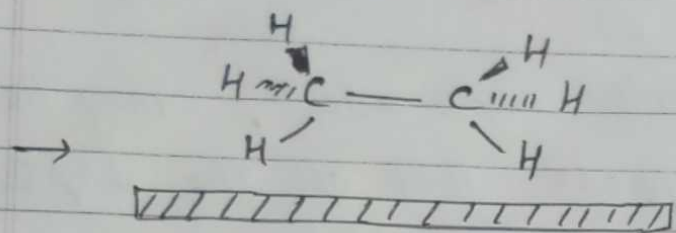 H H
H C — C H
→ H H